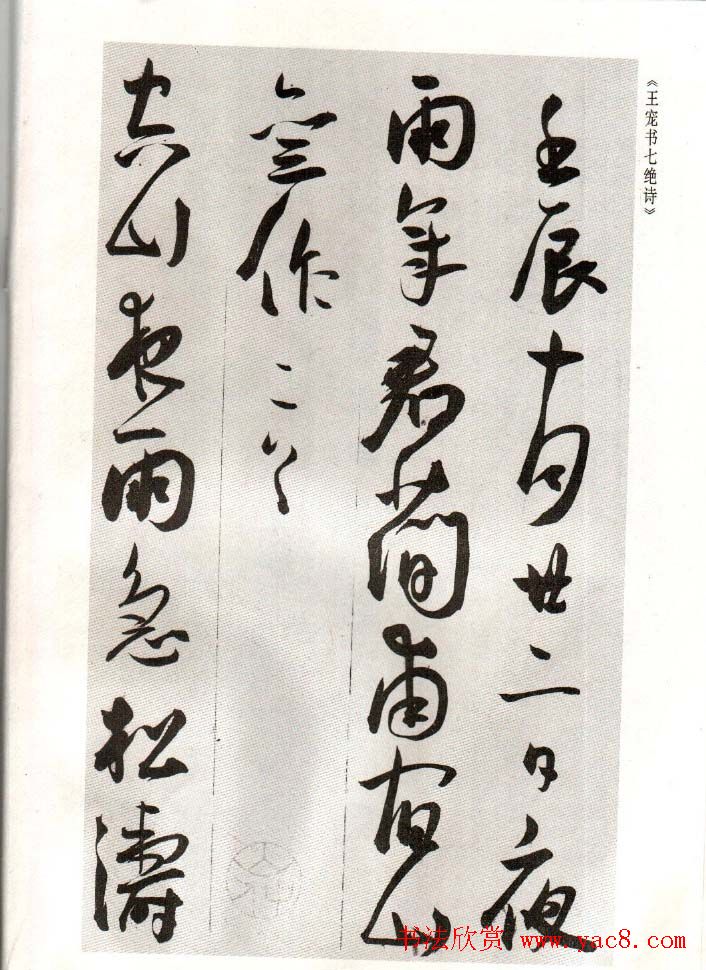 《王宠书七绝诗》
壬辰十月廿二日夜
雨章君簡甫宿山
作二首
空山夜雨急松濤
书法欣赏 www.yac8.com